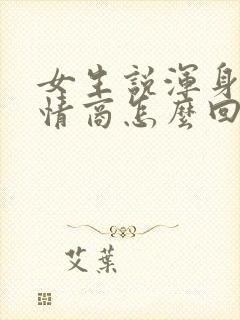 女生説渾身
情商怎麼回
艾葉